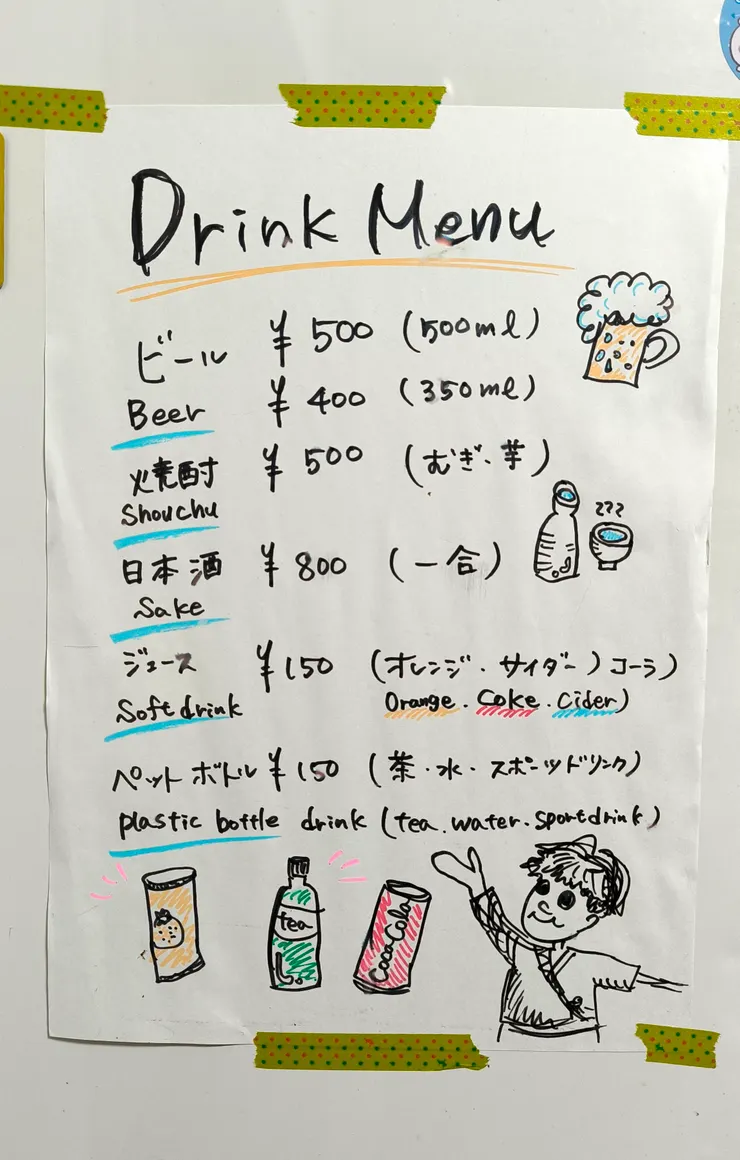 Drink Menu
ビール ¥500 (500ml)
Beer ¥400 (350ml)
焼酎 ¥500 (むぎ、芋)
Shouchu
日本酒 ¥800 (一合)
Sake
ジュース ¥150 (オレンジ・サイダー)コーラ)
Soft drink Orange・Coke・Cider)
ペットボトル ¥150 (茶・水・スポーツドリンク)
plastic bottle drink (tea.water.sportdrink)
tea
Coca-Cola